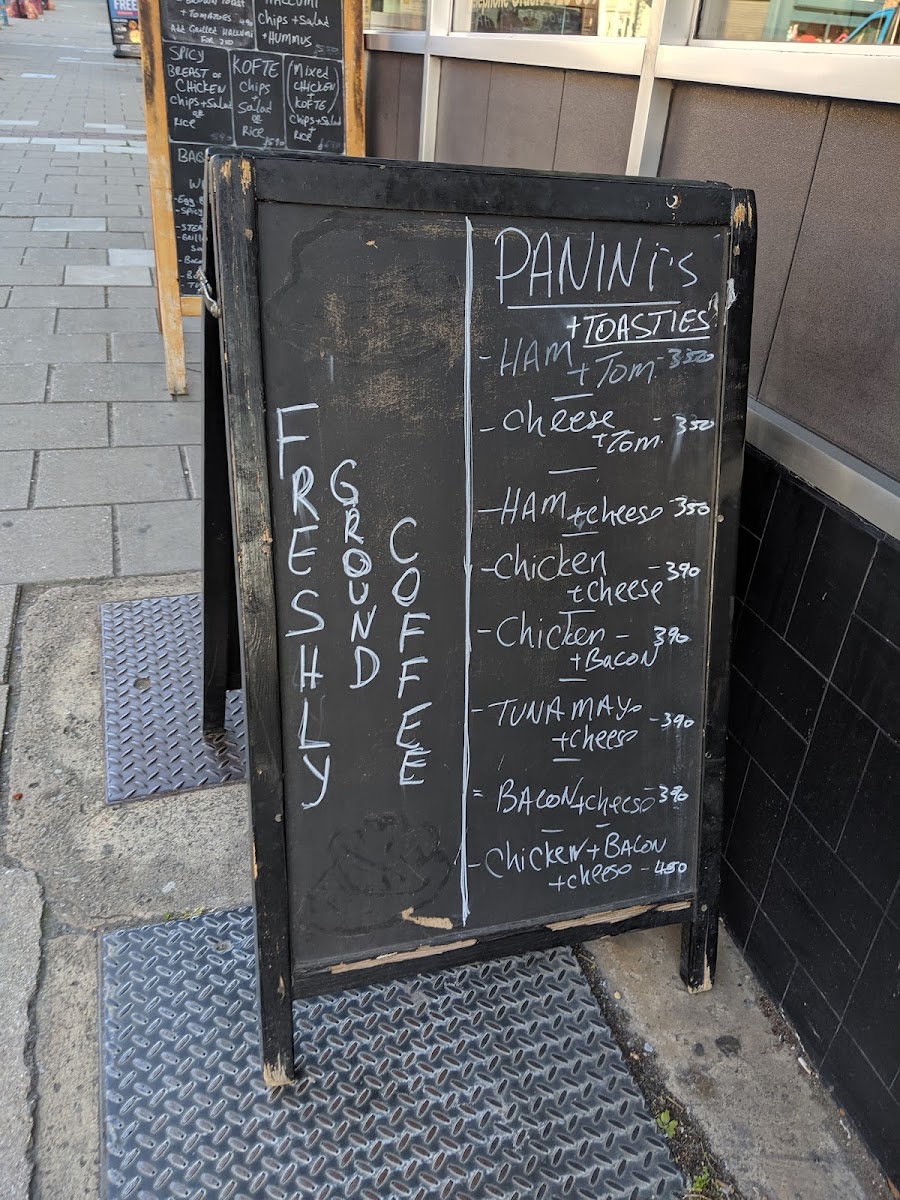 FREE
BROWN TOAST
+ TOMATOES
Add Grilled HALLUMI
FOR 250
HALLUMI
chips + Salad
+ HUMMUS
SPICY
BREAST OF
CHICKEN
chips + Salad
OR
RICE
KOFTE
chips
+
Salad
OR
RICE
(Mixed
CHICKEN
+
KOFTE)
chips + Salad
+
RICE
FRESHLY
GROUND
COFFEE
PANINi's
+ TOASTIES
- HAM
+ Tom - 350
- cheese
+ Tom. - 350
- HAM + cheese - 350
- chicken
+ cheese - 390
- Chicken - 390
+ BACON
- TUNA MAYO
+ cheese - 390
= BACON + cheese - 390
- chicken + BACON
+ cheese - 450